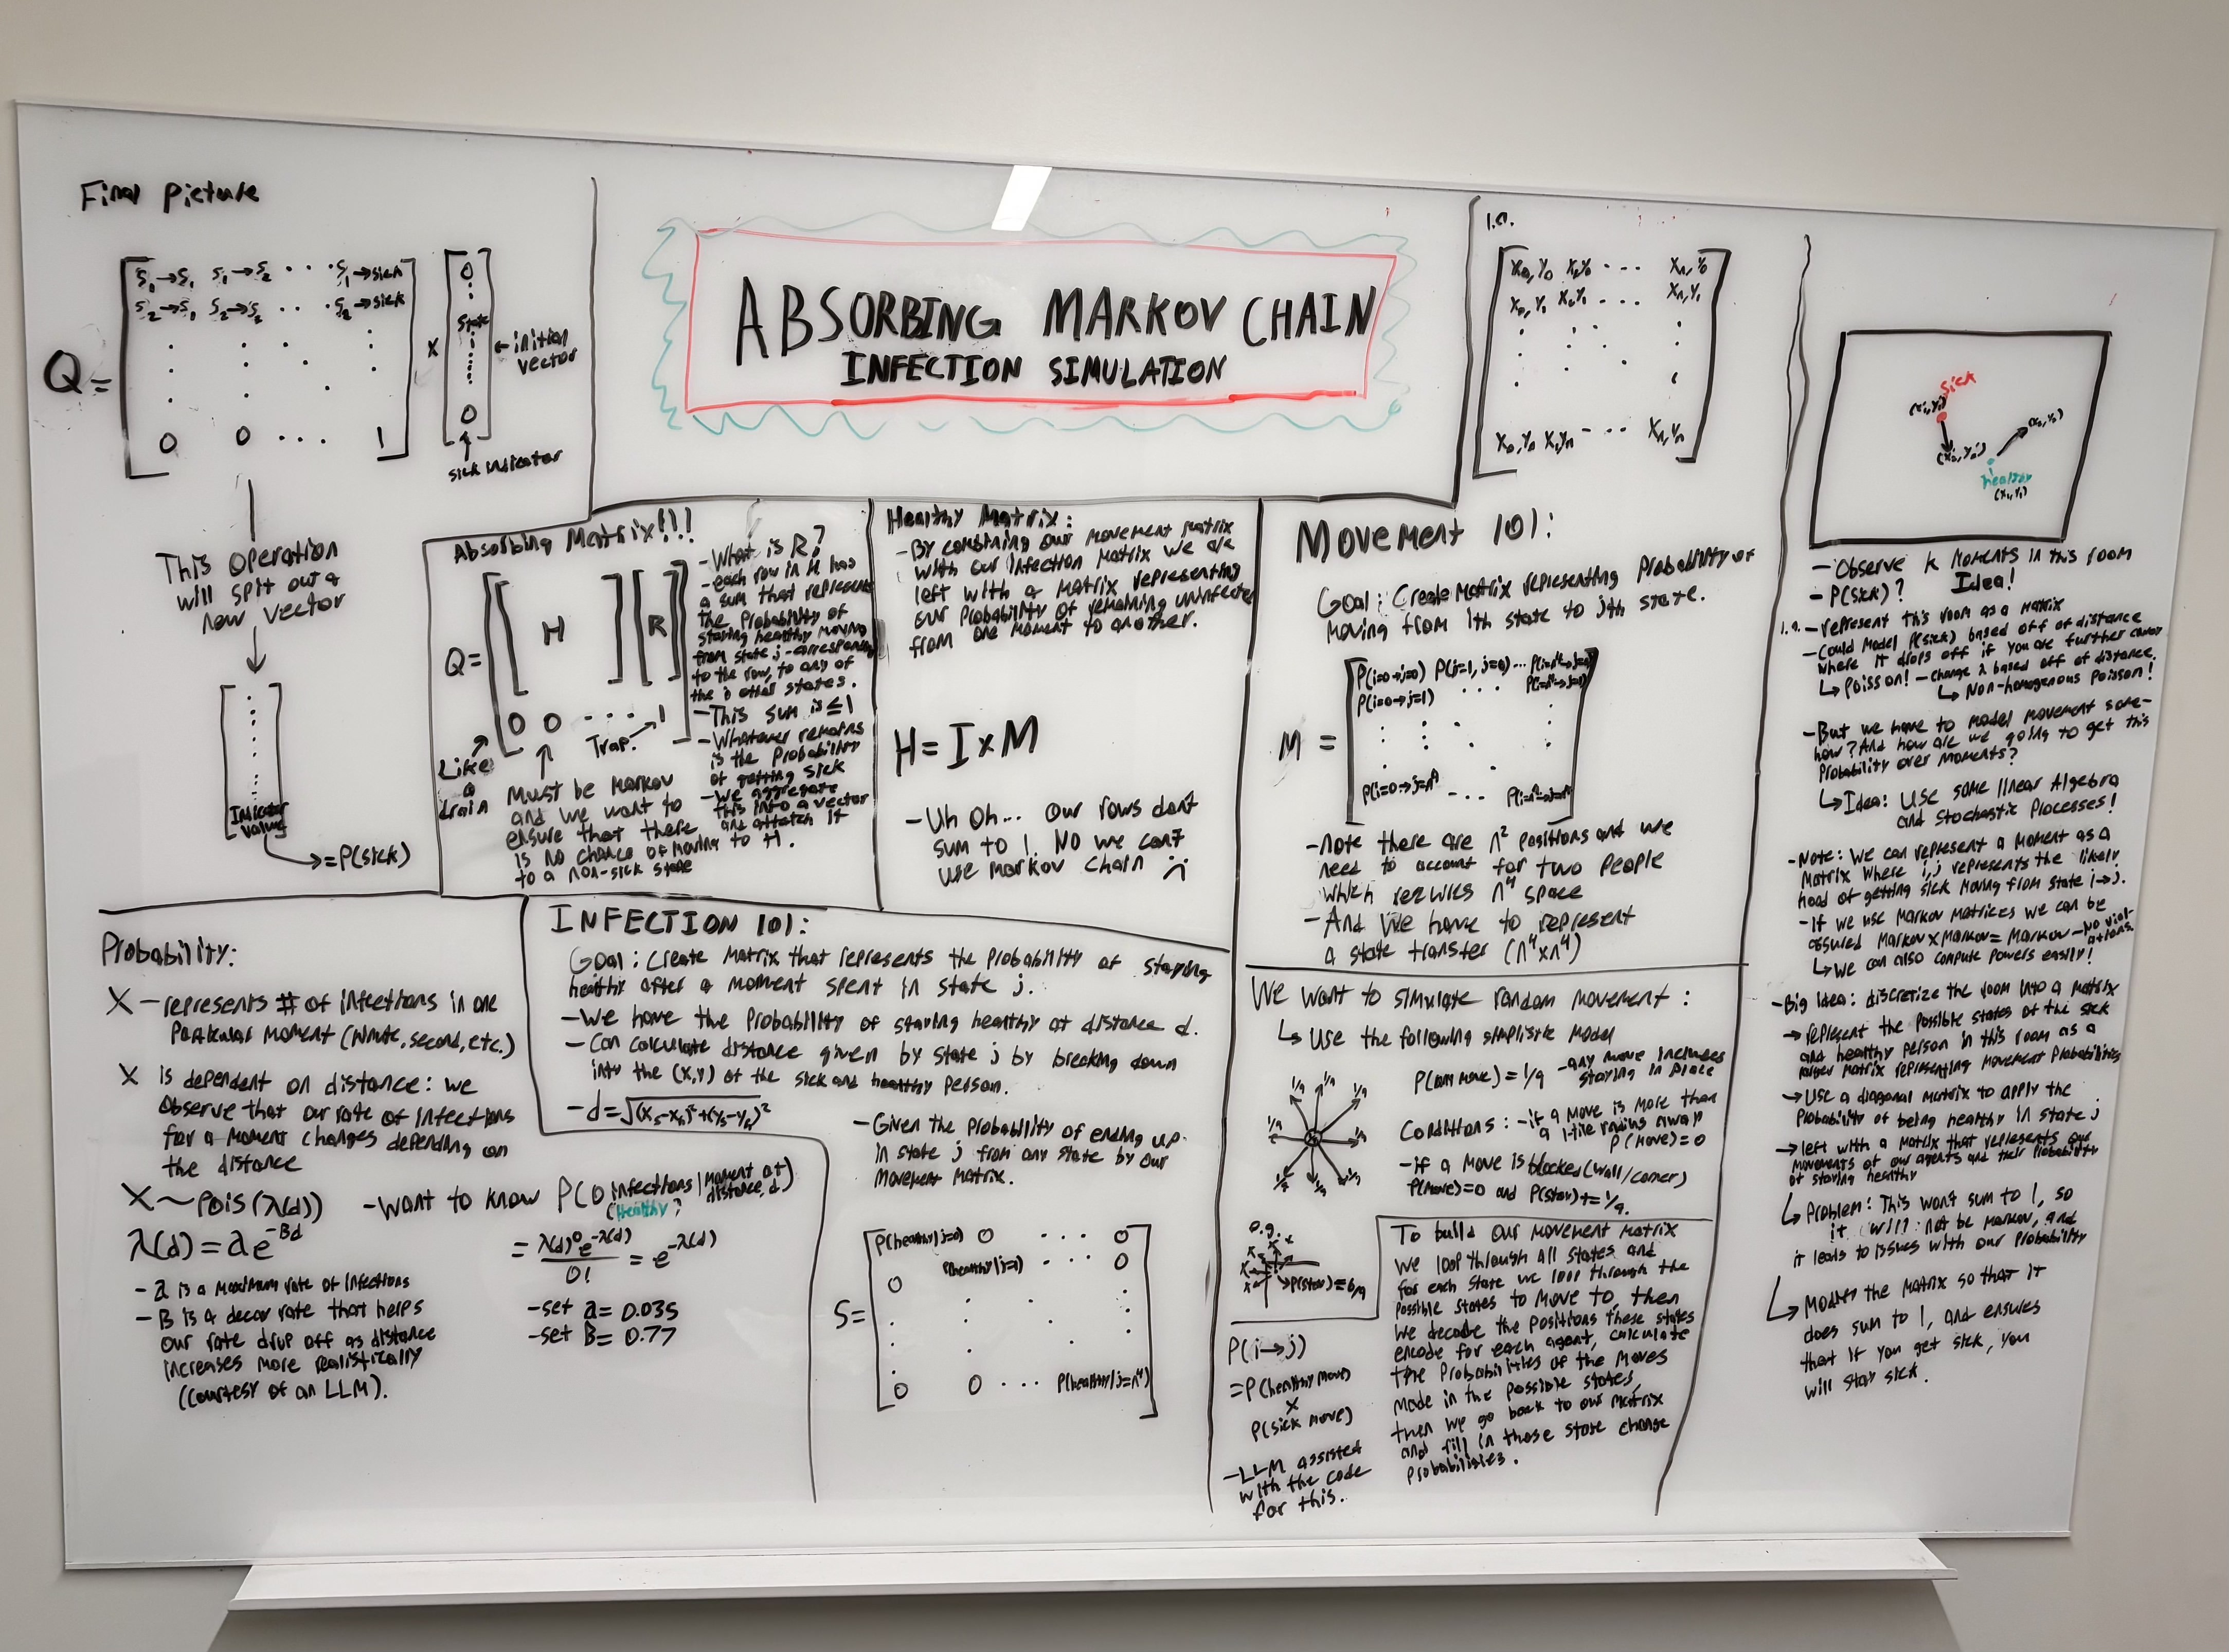 Final Picture
Q =
S₁→S₁ S₁→S₂ · · · S₁→sick
S₂→S₁ S₂→S₂ · · · S₂→sick
0 0 · · · 1
x
0
State
0
← initial
vector
sick indicator
This operation
will spit out a
new vector
Indicator
value
→=P(sick)
ABSORBING MARKOV CHAIN
INFECTION SIMULATION
Absorbing Matrix!!!
Q =
H
R
0 0 · · · 1
Trap.
Like
a
drain
Must be Markov
and we want to
ensure that there
is no chance of moving
to a non-sick state
- What is R?
- each row in H has
a sum that represents
the probability of
staying healthy moving
from state j - corresponding
to the row, to any of
the other states.
- This sum is ≤ 1
- Whatever remains
is the probability
of getting sick
- We aggregate
this into a vector
and attatch it
to H.
Healthy Matrix:
- By combining our movement matrix
with our infection matrix we are
left with a matrix representing
our probability of remaining uninfected
from one moment to another.
H = I x M
- Uh oh... our rows dont
sum to 1. NO we cant
use markov chain :(
1.a.
X₀,Y₀ X₁,Y₀ · · · Xₙ,Y₀
X₀,Y₁ X₁,Y₁ · · · Xₙ,Y₁
X₀,Yₙ X₁,Yₙ · · · Xₙ,Yₙ
Movement 101:
Goal: Create Matrix representing Probability of
moving from ith state to jth state.
M =
P(i=0→j=0) P(i=1, j=0) · · · P(i=n⁴→j=0)
P(i=0→j=1) · · · P(i=n⁴→j=1)
P(i=0→j=n⁴) · · · P(i=n⁴→j=n⁴)
- note there are n² positions and we
need to account for two people
which requires n⁴ space
- And we have to represent
a state transfer (n⁴xn⁴)
We want to simulate random movement:
↳ Use the following simplistic model
1/9 1/9 1/9
1/9 1/9
1/9 1/9 1/9
P(any move) = 1/9 - any move includes
staying in place
Conditions: - if a move is more than
a 1-tile radius away
P(move)=0
- if a move is blocked (wall/corner)
P(move)=0 and P(stay)+=1/9.
e.g.
→P(stay)=6/9
P(i→j)
=P(healthy move)
x
P(sick move)
- LLM assisted
with the code
for this.
To build our movement matrix
we loop through all states and
for each state we loop through the
possible states to move to, then
we decode the positions these states
encode for each agent, calculate
the probabilities of the moves
made in the possible states,
then we go back to our matrix
and fill in those state change
probabilities.
sick
healthy
(x₁,y₁)
- Observe k moments in this room
Idea!
- P(sick)?
1.a. - represent this room as a matrix
- Could model P(sick) based off of distance
where it drops off if you are further away
↳ Poisson! - change λ based off of distance.
↳ Non-homogenous Poisson!
- But we have to model movement some-
how? And how are we going to get this
probability over moments?
↳ Idea: Use some linear Algebra
and Stochastic Processes!
- Note: We can represent a moment as a
matrix where i,j represents the likely
hood of getting sick moving from state i→j.
- If we use Markov matrices we can be
assured Markov x Markov = Markov - no viol-
ations.
↳ We can also compute powers easily!
- Big Idea: discretize the room into a matrix
→ represent the possible states of the sick
and healthy person in this room as a
larger matrix representing movement probabilities
→ Use a diagonal matrix to apply the
probability of being healthy in state j
→ left with a matrix that represents our
movements of our agents and their probability
of staying healthy
↳ Problem: This wont sum to 1, so
it will not be Markov, and
it leads to issues with our probability
↳ Modify the matrix so that it
does sum to 1, and ensures
that if you get sick, you
will stay sick.
Probability:
X - represents # of infections in one
particular moment (minute, second, etc.)
X is dependent on distance: we
observe that our rate of infections
for a moment changes depending on
the distance
X ~ Pois(λ(d))
λ(d) = ae^-Bd
- a is a maximum rate of infections
- B is a decay rate that helps
our rate drop off as distance
increases more realistically
(courtesy of an LLM).
- Want to know P(0 infections | moment at distance, d)
(healthy)
= λ(d)⁰e^-λ(d) / 0! = e^-λ(d)
- set a = 0.035
- set B = 0.77
INFECTION 101:
Goal: Create Matrix that represents the probability of staying
healthy after a moment spent in state j.
- We have the probability of staying healthy at distance d.
- Can calculate distance given by state j by breaking down
into the (x,y) of the sick and healthy person.
- d = √(xₛ-xₕ)²+(yₛ-yₕ)²
- Given the probability of ending up
in state j from any state by our
movement matrix.
S =
P(healthy|j=0) 0 · · · 0
P(healthy|j=1) · · · 0
0
0 0 · · · P(healthy|j=n⁴)